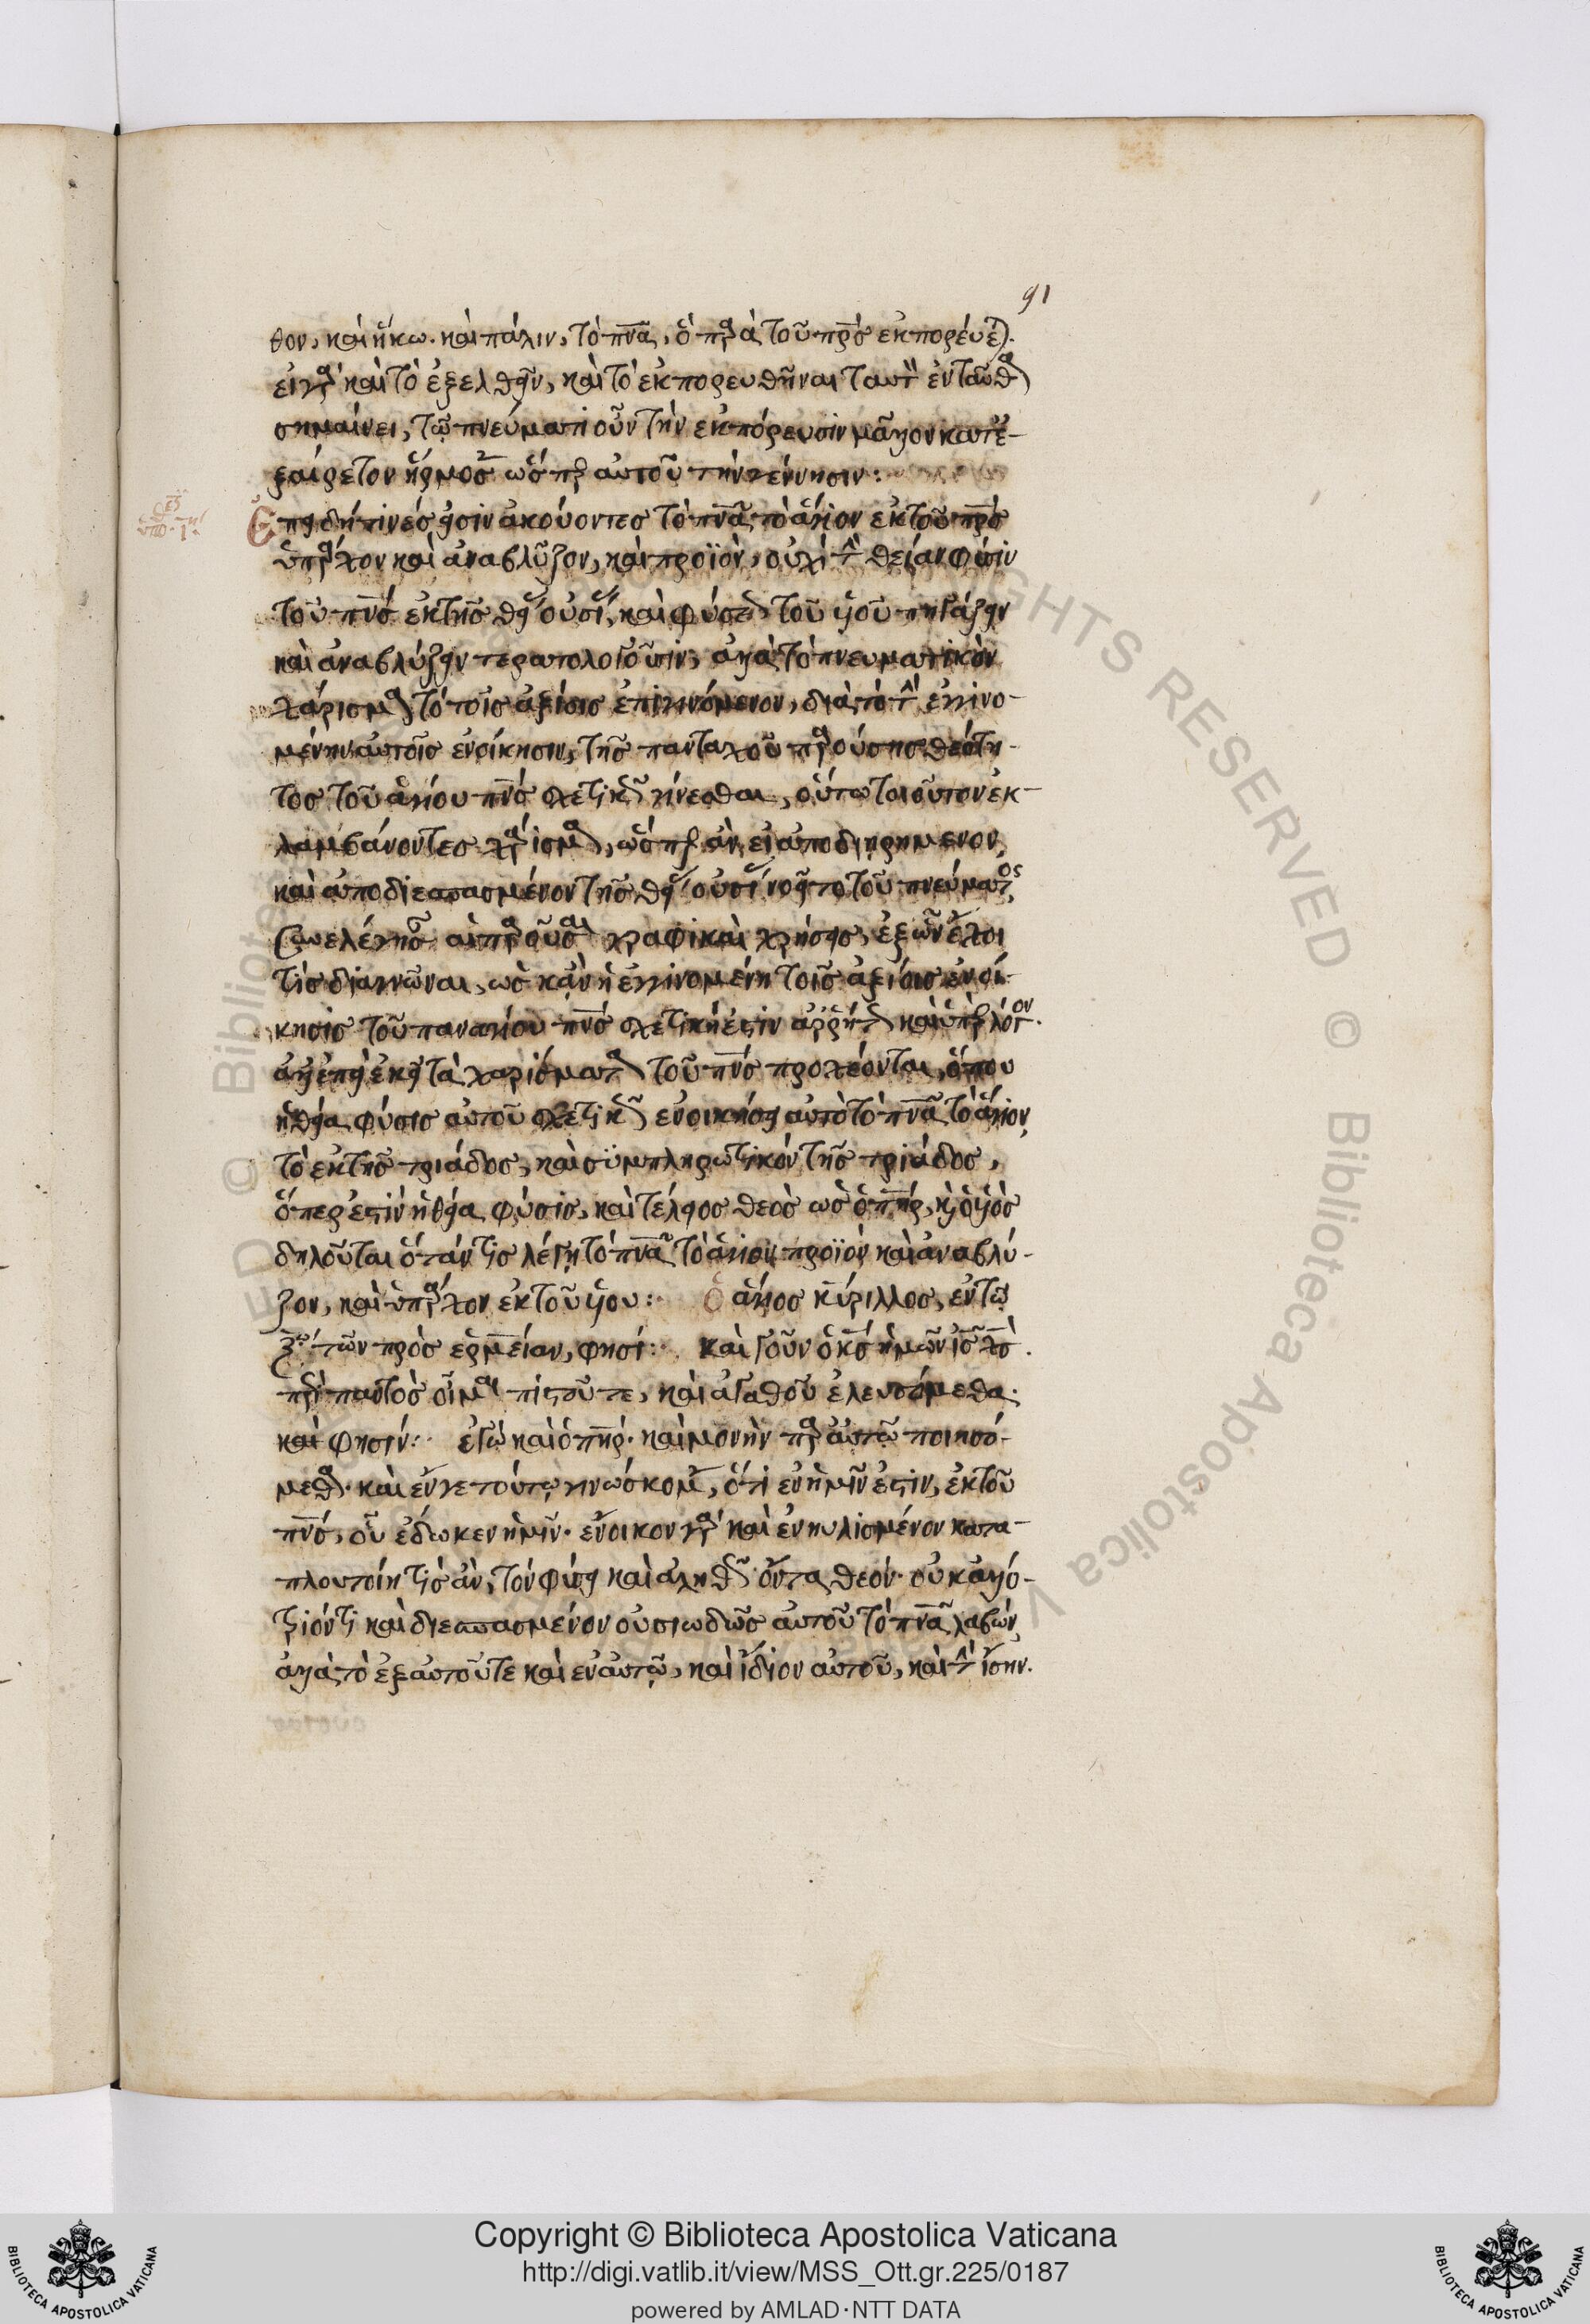 91
θον, καὶ ἥκω. καὶ πάλιν, τὸ πνα, ὃ παρὰ τοῦ πρς ἐκπορεύεται.
εἰ γὰρ καὶ τὸ ἐξελθεῖν, καὶ τὸ ἐκπορευθῆναι ταυτὸν ἐνταῦθα
σημαίνει, τῷ πνεύματι οὖν τὴν ἐκπόρευσιν μᾶλλον κατε-
ξαίρετον ἥρμοσεν ὥσπερ αὐτοῦ τὴν γέννησιν:
Ἐπειδή τινές εἰσιν ἀκούοντες τὸ πνα τὸ ἅγιον ἐκ τοῦ πρς
ὑπάρχον καὶ ἀναβλῦζον, καὶ προϊὸν, οὐχὶ τὴν θείαν φύσιν
τοῦ πνς ἐκ τῆς θείας οὐσίας, καὶ φύσεως τοῦ υἱοῦ πηγάζειν
καὶ ἀναβλύζειν τερατολογοῦσιν, ἀλλὰ τὸ πνευματικὸν
χάρισμα τὸ τοῖς ἀξίοις ἐπιγινόμενον, διὰ τὸ τὴν ἐγγινο-
μένην αὐτοῖς ἐνοίκησιν, τῆς πανταχοῦ παρούσης θεότη-
τος τοῦ ἁγίου πνς σχετικῶς γίνεσθαι, οὕτω τοιοῦτον ἐκ-
λαμβάνοντες χάρισμα, ὥσπερ ἂν εἰ ἀποδιῃρημενον
καὶ ἀποδιεσπασμένον τῆς θείας οὐσίας νοεῖτο τοῦ πνεύματος,
γραφικαὶ χρήσεις, ἐξ ὧν ἔχοι
τὶς διαγνῶναι, ὡς κἂν ἡ ἐγγινομένη τοῖς ἀξίοις ἐνοί-
κησις τοῦ παναγίου πνς σχετική ἐστιν ἀρρήτως καὶ ὑπὲρ λόγον.
ἀλλ' ἐπεὶ ἐκεῖ τὰ χαρίσματα τοῦ πνς προχέονται, ὅπου
ἡ θεία φύσις αὐτοῦ σχετικῶς ἐνοικήσει αὐτὸ τὸ πνα τὸ ἅγιον,
τὸ ἐκ τῆς τριάδος, καὶ συμπληρωτικὸν τῆς τριάδος,
ὅπερ ἐστὶν ἡ θεία φύσις, καὶ τέλειος θεὸς ὡς ὁ πηρ, κὶ ὁ υἱὸς
δηλοῦται ὅτάν τις λέγῃ τὸ πνα τὸ ἅγιον προϊὸν καὶ ἀναβλύ-
ζον, καὶ ὑπάρχον ἐκ τοῦ υἱοῦ: ὁ ἅγιος κύριλλος, ἐν τῷ
ζω τῶν πρὸς ἑρμείαν, φησί: καὶ γοῦν ὁ κς ἡμῶν ις χς.
πιστοῦ τε, καὶ ἀγαθοῦ ἐλευσόμεθα.
καὶ φησίν: ἐγὼ καὶ ὁ πηρ. καὶ μονὴν παρ αὐτῷ ποιησό-
μεθα. καὶ ἔν γε τούτῳ γινώσκομεν, ὅτι ἐν ἡμῖν ἐστιν, ἐκ τοῦ
πνς, οὗ ἔδωκεν ἡμῖν. ἔνοικον γὰρ καὶ ἐνηυλισμένον κατα-
πλουτοίη τὶς ἂν, τὸν φύσει καὶ ἀληθῶς ὄντα θεόν. οὐκ ἀλλό-
τριόν τι καὶ διεσπασμένον οὐσιωδῶς αὐτοῦ τὸ πνα λαβὼν,
ἀλλὰ τὸ ἐξ αὐτοῦ τε καὶ ἐν αὐτῷ, καὶ ἴδιον αὐτοῦ, καὶ τὴν ἴσην.
Copyright © Biblioteca Apostolica Vaticana
http://digi.vatlib.it/view/MSS_Ott.gr.225/0187
powered by AMLAD·NTT DATA
BIBLIOTECA APOSTOLICA VATICANA
BIBLIOTECA APOSTOLICA VATICANA